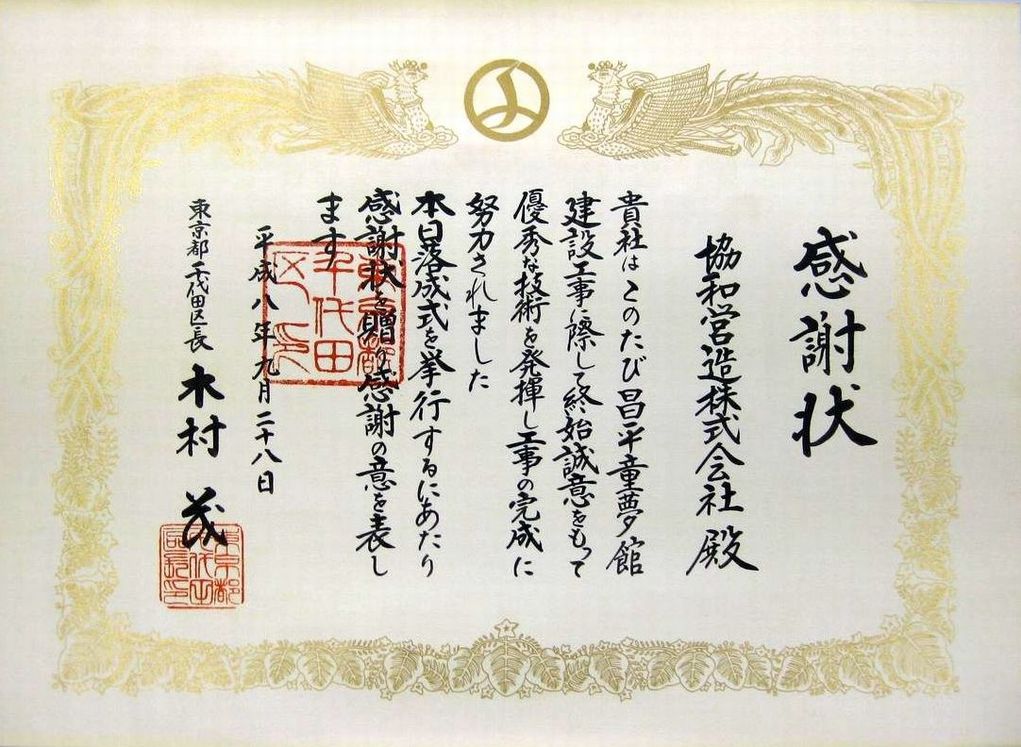 感謝状
協和営造株式会社 殿
貴社はこのたび昌平童夢館
建設工事に際して終始誠意をもって
優秀な技術を発揮し工事の完成に
努力されました
本日落成式を挙行するにあたり
感謝状を贈り感謝の意を表し
ます
平成八年九月二十八日
東京都千代田区長 木村 茂
東京都
千代田
区印
東京都
千代田
区長印